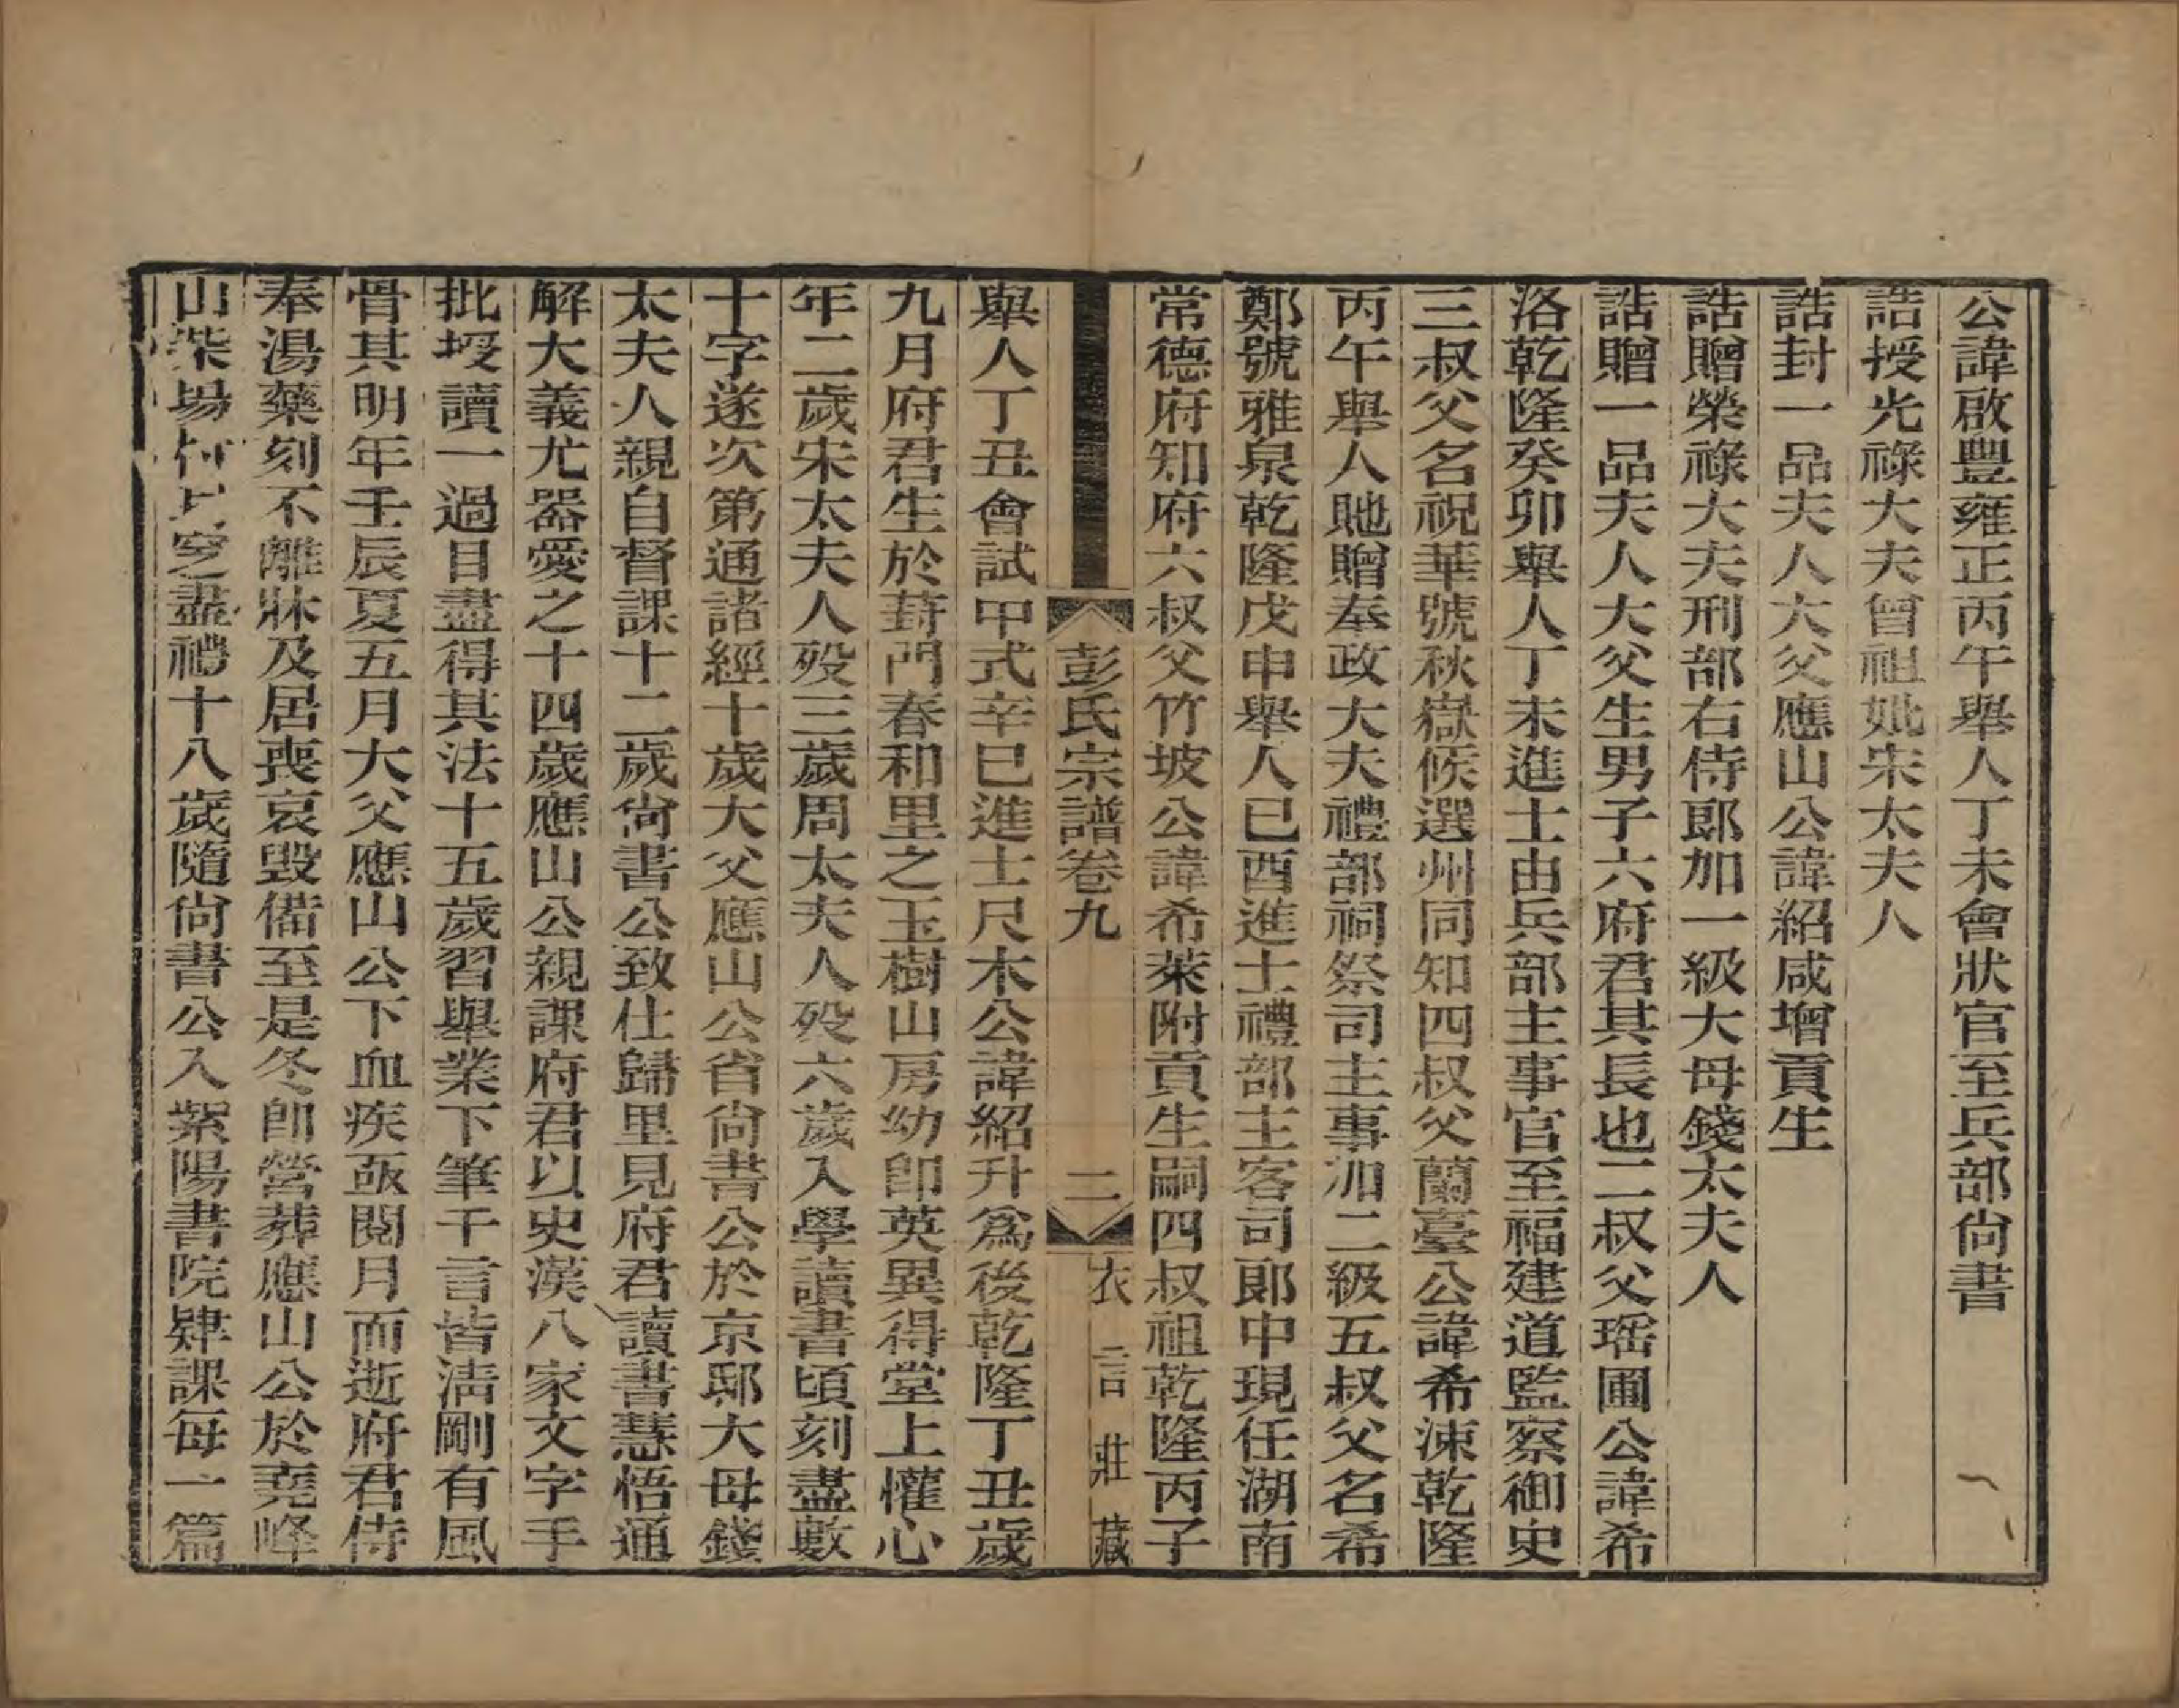 公諱啟豐雍正丙午舉人丁未會狀官至兵部尚書
誥授光祿大夫曾祖妣宋太夫人
誥封一品夫人大父應山公諱紹咸增貢生
誥贈榮祿大夫刑部右侍郎加一級大母錢太夫人
誥贈一品夫人大父生男子六府君其長也二叔父瑶圃公諱希
洛乾隆癸卯舉人丁未進士由兵部主事官至福建道監察御史
三叔父名祝華號秋嶽候選州同知四叔父蘭臺公諱希涑乾隆
丙午舉人貤贈奉政大夫禮部祠祭司主事加二級五叔父名希
鄭號雅泉乾隆戊申舉人已酉進士禮部主客司郎中現任湖南
常德府知府六叔父竹坡公諱希萊附貢生嗣四叔祖乾隆丙子
彭氏宗譜卷九
二
衣言莊藏
舉人丁丑會試中式辛巳進士尺木公諱紹升爲後乾隆丁丑歲
九月府君生於葑門春和里之玉樹山房幼卽英異得堂上懽心
年二歲宋太夫人歿三歲周太夫人歿六歲入學讀書頃刻盡數
十字遂次第通諸經十歲大父應山公省尚書公於京邸大母錢
太夫人親自督課十二歲尚書公致仕歸里見府君讀書慧悟通
解大義尤器愛之十四歲應山公親課府君以史漢八家文字手
批授讀一過目盡得其法十五歲習舉業下筆千言皆淸剛有風
骨其明年壬辰夏五月大父應山公下血疾亟閱月而逝府君侍
奉湯藥刻不離牀及居喪哀毀備至是冬卽營葬應山公於堯峰
山柴場 穸盡禮十八歲隨尚書公入紫陽書院肄課每一篇